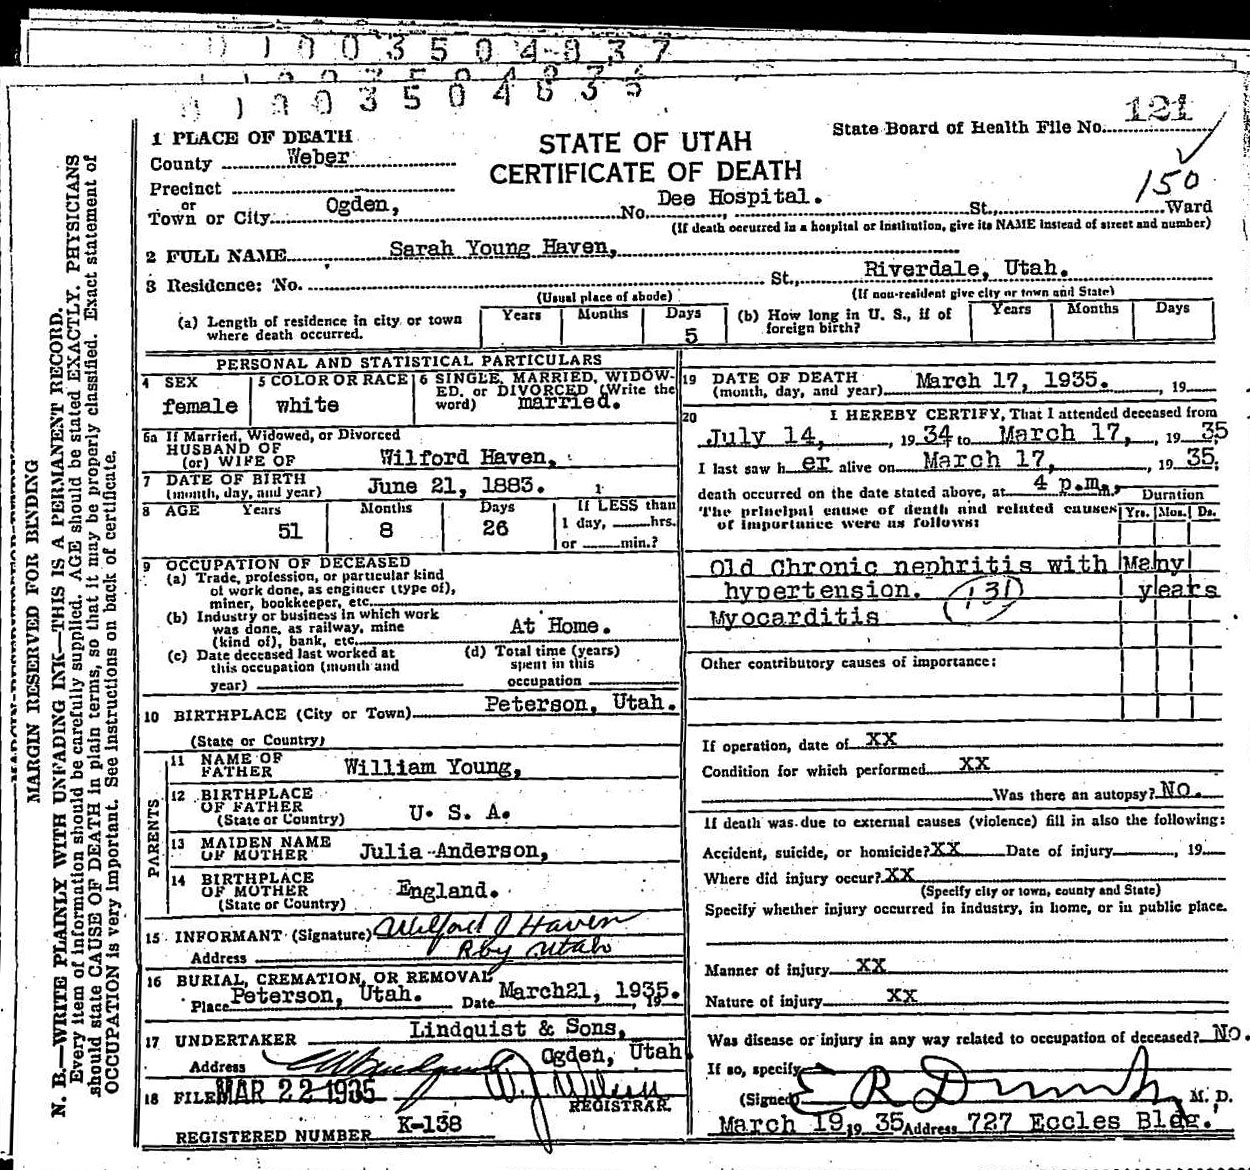 01003504837
01003504836
MARGIN RESERVED FOR BINDING
N. B.—WRITE PLAINLY WITH UNFADING INK—THIS IS A PERMANENT RECORD.
Every item of information should be carefully supplied. AGE should be stated EXACTLY. PHYSICIANS
should state CAUSE OF DEATH in plain terms, so that it may be properly classified. Exact statement of
OCCUPATION is very important. See instructions on back of certificate.
STATE OF UTAH
CERTIFICATE OF DEATH
State Board of Health File No. 121
150
1 PLACE OF DEATH
County Weber
Precinct
or
Town or City Ogden, No. Dee Hospital. St., Ward
(If death occurred in a hospital or institution, give its NAME instead of street and number)
2 FULL NAME Sarah Young Haven,
3 Residence: No. St., Riverdale, Utah.
(Usual place of abode) (If non-resident give city or town and State)
(a) Length of residence in city or town where death occurred. Years Months Days 5
(b) How long in U. S., if of foreign birth? Years Months Days
PERSONAL AND STATISTICAL PARTICULARS
4 SEX female
5 COLOR OR RACE white
6 SINGLE, MARRIED, WIDOWED, or DIVORCED (Write the word) married.
6a If Married, Widowed, or Divorced
HUSBAND OF
(or) WIFE OF Wilford Haven,
7 DATE OF BIRTH
(month, day, and year) June 21, 1883.
8 AGE Years 51 Months 8 Days 26
If LESS than
1 day, hrs.
or min.?
9 OCCUPATION OF DECEASED
(a) Trade, profession, or particular kind
of work done, as engineer (type of),
miner, bookkeeper, etc.
(b) Industry or business in which work
was done, as railway, mine
(kind of), bank, etc. At Home.
(c) Date deceased last worked at
this occupation (month and
year)
(d) Total time (years)
spent in this
occupation
10 BIRTHPLACE (City or Town) Peterson, Utah.
(State or Country)
PARENTS
11 NAME OF
FATHER William Young,
12 BIRTHPLACE
OF FATHER
(State or Country) U. S. A.
13 MAIDEN NAME
OF MOTHER Julia Anderson,
14 BIRTHPLACE
OF MOTHER
(State or Country) England.
15 INFORMANT (Signature) Wilford J Haven
Address Roy Utah
16 BURIAL, CREMATION, OR REMOVAL
Place Peterson, Utah. Date March21, 1935. 19
17 UNDERTAKER Lindquist & Sons,
Address Ogden, Utah
18 FILED MAR 22 1935
REGISTRAR.
REGISTERED NUMBER K-138
19 DATE OF DEATH
(month, day, and year) March 17, 1935. , 19
20 I HEREBY CERTIFY, That I attended deceased from
July 14, , 1934 to March 17, , 1935
I last saw her alive on March 17, , 1935;
death occurred on the date stated above, at 4 p.m.,
The principal cause of death and related causes
of importance were as follows:
Duration
Yrs. Mos. Ds.
Old Chronic nephritis with Many
hypertension. 131 years
Myocarditis
Other contributory causes of importance:
If operation, date of XX
Condition for which performed XX
Was there an autopsy? No.
If death was due to external causes (violence) fill in also the following:
Accident, suicide, or homicide? XX Date of injury , 19
Where did injury occur? XX
(Specify city or town, county and State)
Specify whether injury occurred in industry, in home, or in public place.
Manner of injury XX
Nature of injury XX
Was disease or injury in any way related to occupation of deceased? No.
If so, specify
(Signed) E R M. D.
March 19, 19 35 Address 727 Eccles Bldg.